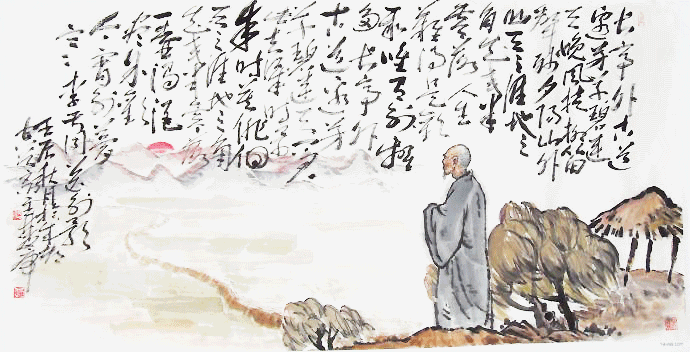 长亭外古道
边芳草碧连
天晚风拂柳笛
声残夕阳山外
山天之涯地之
角知交半
零落人生
难得是欢
聚唯有别离
多长亭外
古道边芳
草碧连天问君
此去几时还
来时莫徘徊
天之涯地之角
知交半零落
一壶浊酒
尽余欢
今宵别梦
寒李叔同送别歌
壬辰秋月